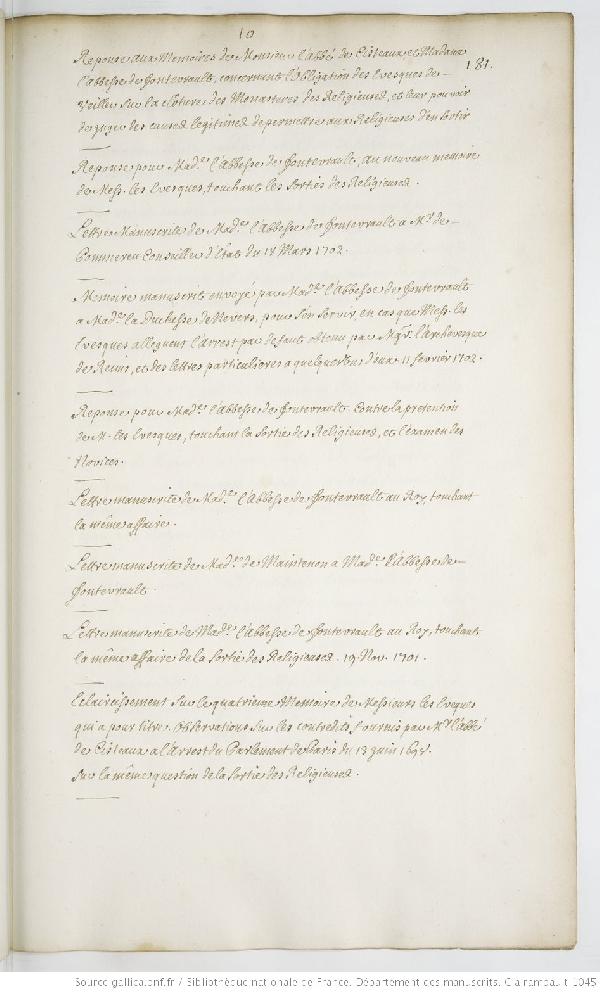 10
181.
Reponse aux Memoires de Monsieur l'abbé de Cisteaux, et Madame
l'abbesse de fontevrault, concernant l'obligation des Evesques de
Veiller sur la clôture des Monasteres des Religieuses, et leur pouvoir
de juger des causes legitimes de permettre aux Religieuses d'en sortir
Reponse pour Mad.e l'abbesse de fontevrault, au nouveau memoire
de Mess. les Evesques, touchant les sorties des Religieuses.
Lettre Manuscrite de Mad.e l'abbesse de fontevrault a Mr. de
Pommereu Conseiller d'Etat du 18 Mars 1702.
Memoire manuscrit envoyé par Mad.e l'Abbesse de fontevrault
a Mad.e la Duchesse de Nevers, pour s'en servir en cas que Mess. les
Evesques alleguent l'arrest par defaut obtenu par Mgr. l'archevesque
de Reims, et des lettres particulieres a quelques uns d'eux 11 fevrier 1702.
Reponse pour Mad.e l'abbesse de fontevrault contre la pretention
de M. les Evesques, touchant la sortie des Religieuses, et l'examen des
Novices.
Lettre manuscrite de Mad.e l'Abbesse de fontevrault au Roy, touchant
la même affaire.
Lettre manuscrite de Mad.e de Maintenon a Mad.e l'Abbesse de
fontevrault.
Lettre manuscrite de Mad.e l'abbesse de fontevrault au Roy, touchant
la même affaire de la sortie des Religieuses. 19 Nov. 1701.
Eclaircissement sur le quatrieme Memoire de Messieurs les Eveques
qui a pour titre Observations sur les contredits fournis par Mr. l'abbé
de Cisteaux a l'arrest du Parlement de Paris du 13 juin
sur la même question de la sortie des Religieuses.
Source gallica.bnf.fr / Bibliothèque nationale de France. Département des manuscrits. Clairambault 1045